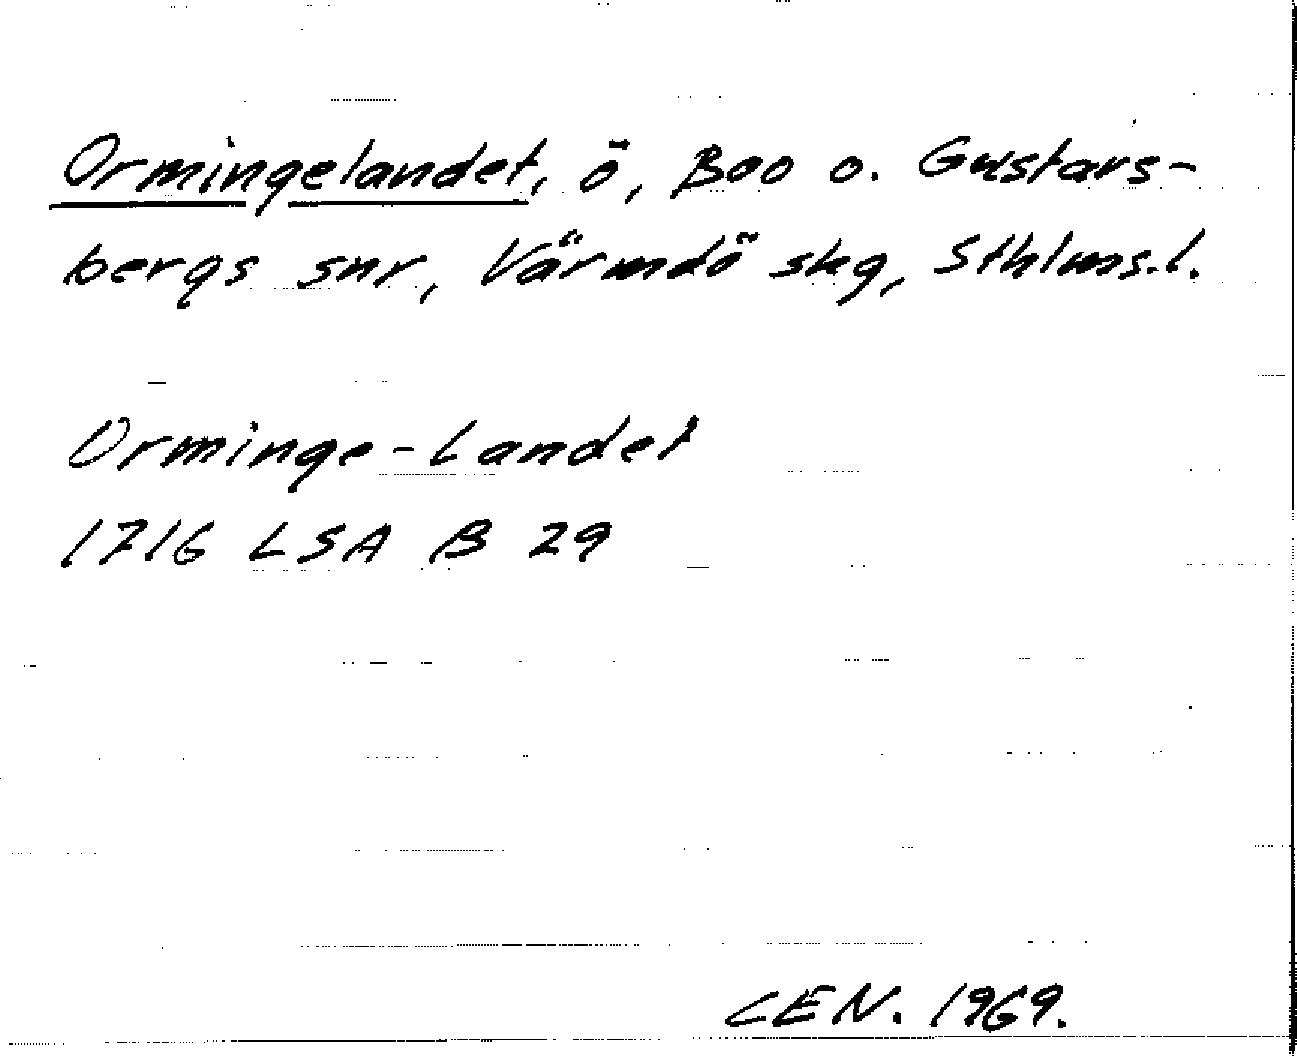 Ormingelandet, ö, Boo o. Gustavs-
bergs snr, Värmdö skg, Sthlms.l.
Orminge-Landet
1716 LSA B 29
CEN. 1969.